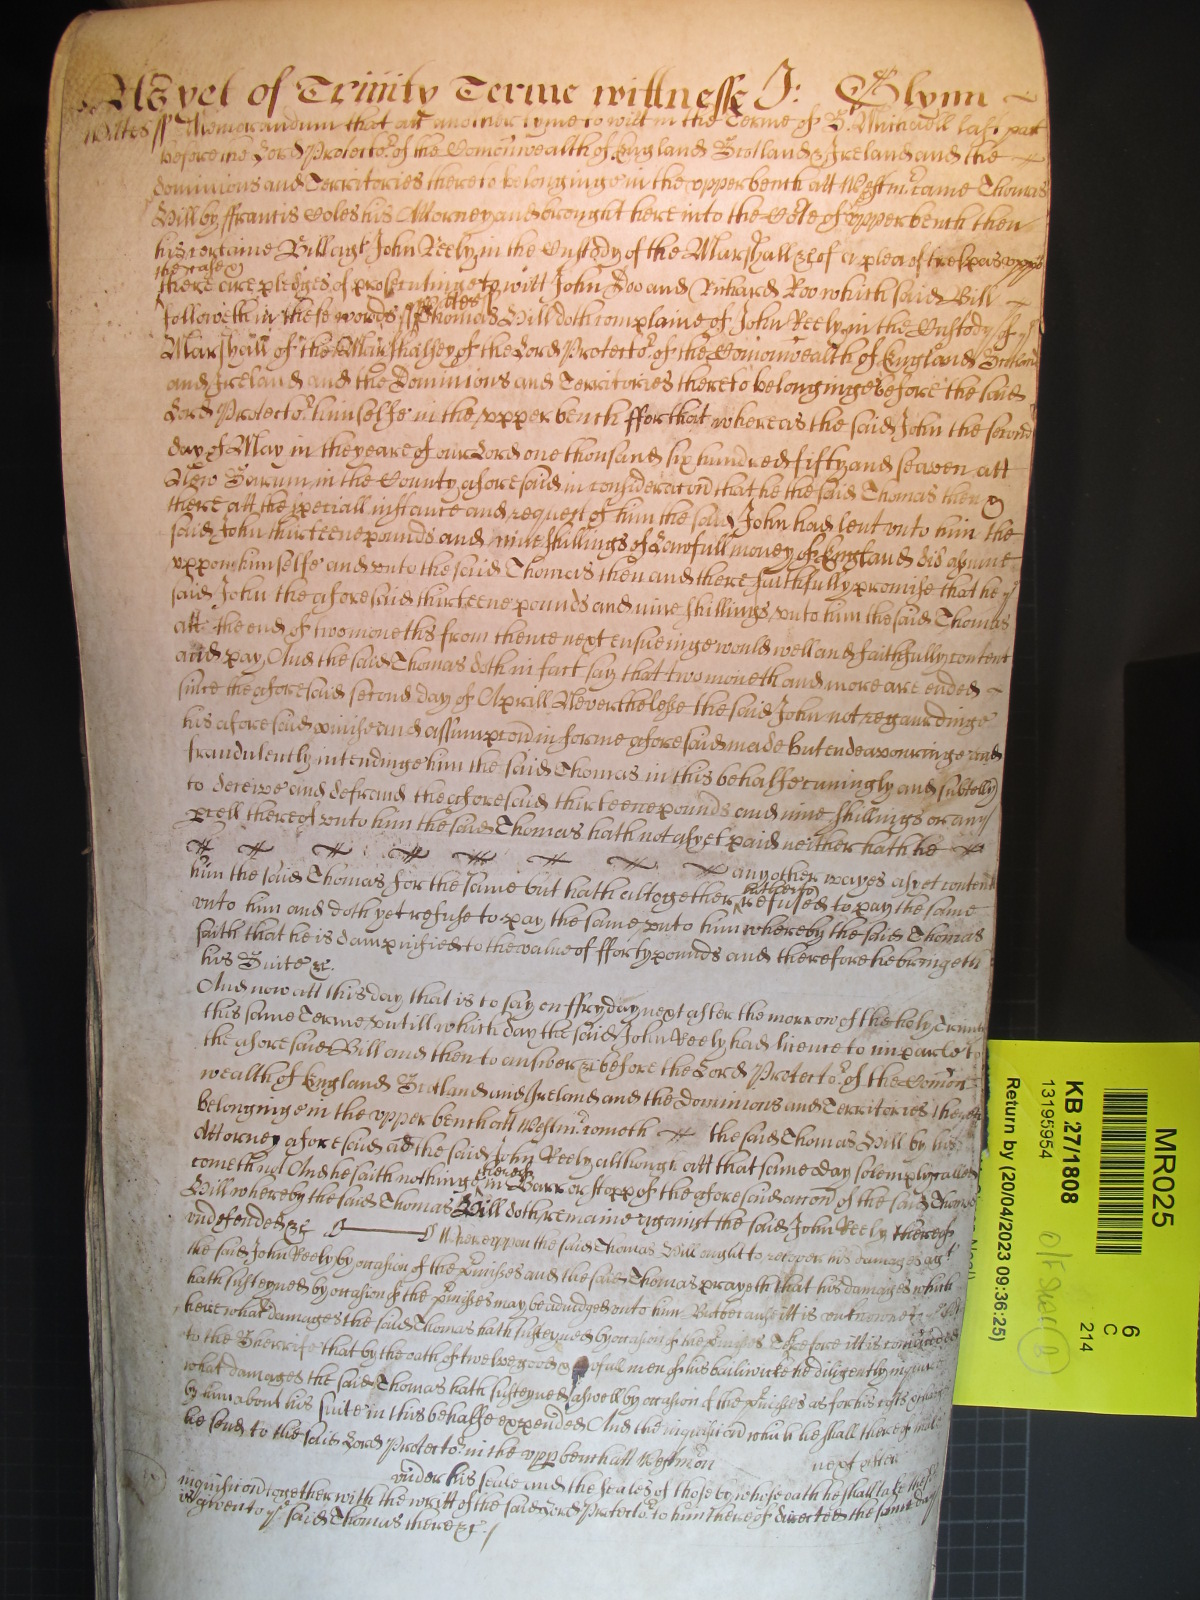 As yet of Trinity Terme wittnesse J: Glynn
Wiltes ss Memorandum that att another tyme to witt in the Terme of St. Michaell last past
before the Lord Protector of the Comonwealth of England Scotland & Ireland and the
dominions and Territories thereto belonginge in the upper bench att Westmr. came Thomas
Hill by ffrancis Coles his Attorney and brought here into the Cort of upper bench then
his certaine Bill agt. John Keely in the Custody of the Marshall &c of a plea of trespas uppo
the case &
there are pledges of prosecutinge to witt John Doo and Richard Roo which said Bill
followeth in these words ss Wiltes ss Thomas Hill doth complaine of John Keely in the Custody of ye
Marshall of the Marshalsey of the Lord Protector. of the Comonwealth of England Scotland
and Ireland and the Dominions and Territories thereto belonginge before the said
Lord Protector. himselfe in the upper bench ffor that whereas the said John the second
day of May in the yeare of our Lord one thousand six hundred fifty and seaven att
New Sarum in the County aforesaid in consideracon that he the said Thomas then &
there att the speciall instance and request of him the said John had lent unto him the
said John thirteene pounds and nine shillings of Lawfull money of England did assume
uppon himselfe and unto the said Thomas then and there faithfully promise that he ye
said John the aforesaid thirteene pounds and nine shillings unto him the said Thomas
att the end of two moneths from thence next ensueinge would well and faithfully content
and pay And the said Thomas doth in fact say that two moneth and more are ended
since the aforesaid second day of Aprill Neverthelesse the said John not regardinge
his aforesaid pmise and assumpcon in forme aforesaid made but endeavouringe and
fraudulently intendinge him the said Thomas in this behalfe cuningly and subtelly
to deceive and defraud the aforesaid thirteene pounds and nine shillings or any
pcell thereof unto him the said Thomas hath not as yet paid neither hath he
any other wayes as yet content
him the said Thomas for the same but hath altogether hitherto refused to pay the same
unto him and doth yet refuse to pay the same unto him whereby the said Thomas
saith that he is dampnified to the value of fforty pounds and therefore he bringeth
his Suite &c.
And now att this day that is to say on ffryday next after the morrow of the holy Trinity
this same Terme untill which day the said John Keely had licence to imparle to
the aforesaid Bill and then to answer &c before the Lord Protector. of the Comon
wealth of England Scotland and Ireland and the Dominions and Territories thereto
belonginge in the upper bench att Westmr. cometh the said Thomas Hill by his
Attorney aforesaid and the said John Keely although att that same day solemply called
cometh not And he saith nothinge thereof in Barr or stopp of the aforesaid accon of the said Thomas
Hill whereby the said Thomas Hill doth remaine against the said John Keely thereof
undefended &c Whereuppon the said Thomas Hill ought to recover his damages agt.
the said John Keely by occasion of the pmisses and the said Thomas prayeth that his damages which
hath susteyned by occasion of the pmisses may be adiudged unto him But because itt is unknowne
here what damages the said Thomas hath susteyned by occasion of the pmisses Therefore itt is comanded
to the Sherriffe that by the oath of twelve good & lawfull men of his bailiwicke he diligently inquire
what damages the said Thomas hath susteyned aswell by occasion of the pmisses as for his costs
by him about his suite in this behalfe expended And the inquisicon which he shall thereof
he send to the said Lord Protector. in the upp bench att Westmon next after
under his seale and the seales of those by whose oath he shall take the
inquisicon together with the writt of the said Lord Protector. to him thereof directed the same day
is given to ye. said Thomas there &c.
MR025
KB 27/1808
13195954
Return by (20/04/2023 09:36:25)
6
C
214